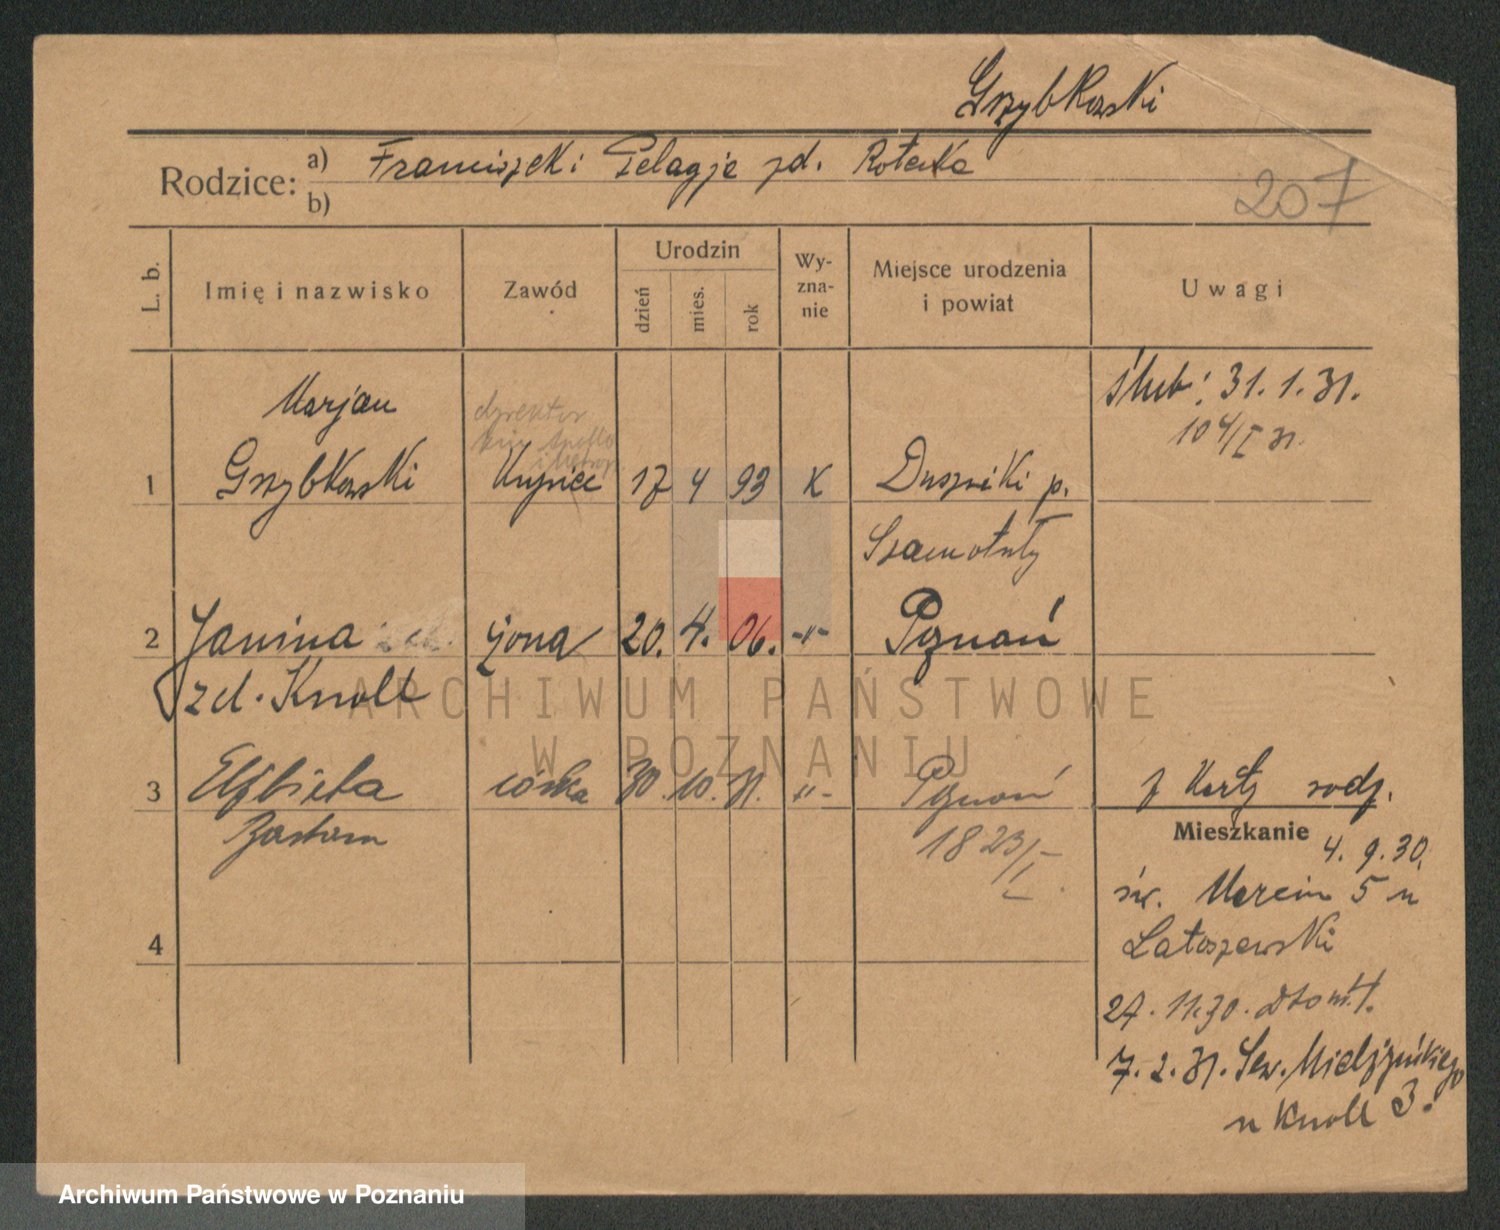 Grzybkowski
Rodzice: a) Franciszek i Pelagje zd. Roterka
b)
207
L. b.
Imię i nazwisko
Zawód
Urodzin
dzień
mies.
rok
Wy-
zna-
nie
Miejsce urodzenia
i powiat
Uwagi
ślub: 31.1.31.
Marjan
dyrektor
kin Apollo
1 Grzybkowski Kupiec 17 4 93 K Duszniki p.
Szamotuły
2 Janina żona 20. 4. 06. -"- Poznań
zd. Knoll
ARCHIWUM PAŃSTWOWE
W POZNANIU
3 Elżbieta córka 30. 10. 31. -"- Poznań
Barbara
1823/I
z Karty rodz.
Mieszkanie
4.9.30.
św. Marcin 5 u
Latoszewski
4
27.11.30.
7.2.31. Sew. Mielżyńskiego
u Knoll 3.
Archiwum Państwowe w Poznaniu